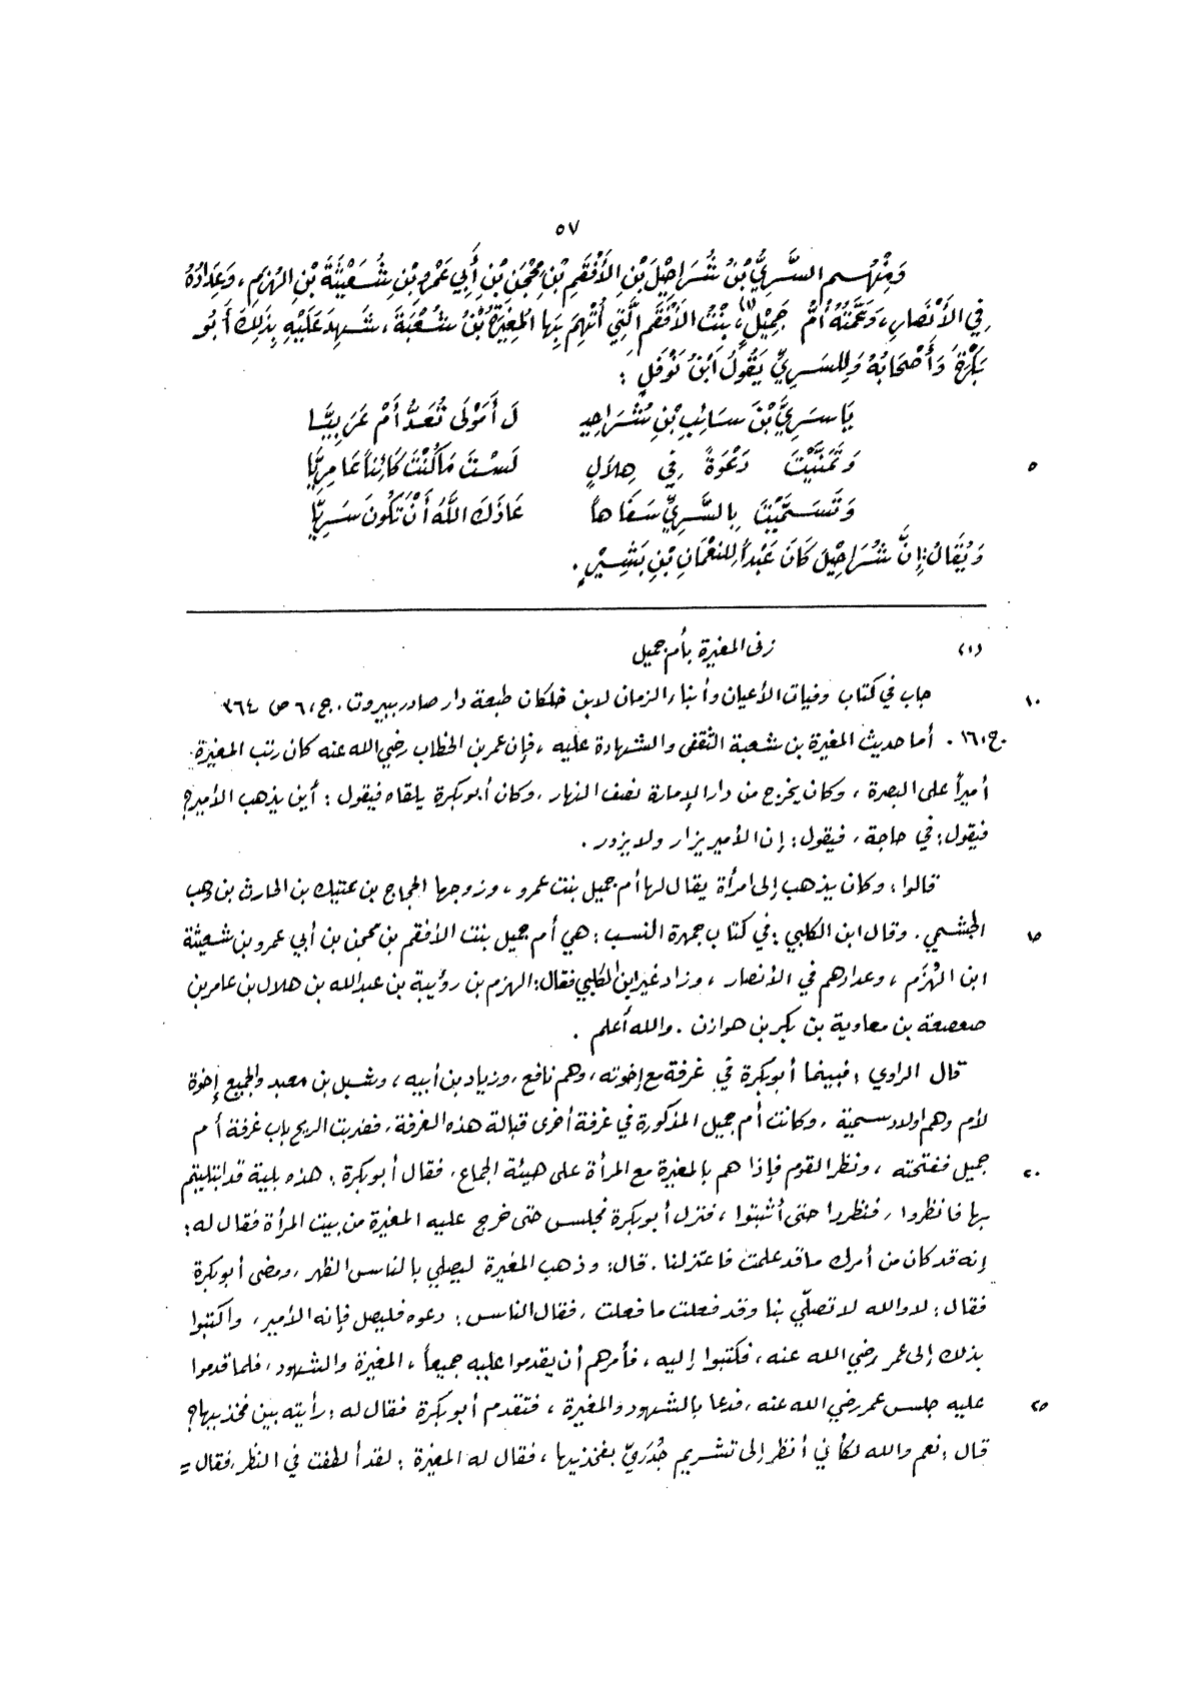 ٥٧
وَمِنْهُم السَّرِيُّ بْنُ شُرَاحِيْلَ بْنِ الأَفْقَمِ بْنِ مِحْجَنِ بْنِ أَبِي عَمْرِو بْنِ شُعَيْثَةَ بْنِ الهُزَمِ، وَعِدَادُهُ
فِي الأَنْصَارِ، وَعَمَّتُهُ أُمُّ جَمِيْلٍ (١) بِنْتُ الأَفْقَمِ الَّتِي أُتُّهِمَ بِهَا المُغِيْرَةُ بْنُ شُعْبَةَ، شَهِدَ عَلَيْهِ بِذَلِكَ أَبُو
بَكْرَةَ وَأَصْحَابُهُ وَلِلسَرِيِّ يَقُولُ ابْنُ نَوْفَلٍ :
يَا سَرِيَّ بْنَ سَائِبِ بْنِ شُرَاحِيـ لَ أَمَوْلَى تُعَدُّ أَمْ عَرَبِيَّا
وَتَمَنَّيْتَ دَعْوَةً فِي هِلَالٍ لَسْتَ مَا كُنْتَ كَائِناً عَامِرِيَّا
٥
وَتَسَمَّيْتَ بِالسَّرِيِّ سَفَاهاً عَاذَكَ اللَّهُ أَنْ تَكُونَ سَرِيَّا
وَيُقَالُ: إِنَّ شُرَاحِيْلَ كَانَ عَبْداً لِلنعْمَانِ بْنِ بَشِيْرٍ .
(١) زنى المغيرة بأم جميل
١٠ جاب في كتاب وفيات الأعيان وأبناء الزمان لابن خلكان طبعة دار صادر ببيروت . ج ، ٦ ص ٣٦٤
ج ، ١٦ . أما حديث المغيرة بن شعبة الثقفي والشهادة عليه ، فإن عمر بن الخطاب رضي الله عنه كان رتب المغيرة
أميراً على البصرة ، وكان يخرج من دار الإمارة نصف النهار ، وكان أبو بكرة يلقاه فيقول : أين يذهب الأمير؟
فيقول: في حاجة ، فيقول : إن الأمير يزار ولا يزور .
قالوا : وكان يذهب إلى امرأة يقال لها أم جميل بنت عمرو ، وزوجها الحجاج بن عتيك بن الحارث بن وهب
١٥ الجشمي . وقال ابن الكلبي : في كتاب جمهرة النسب : هي أم جميل بنت الأفقم بن محجن بن أبي عمرو بن شعيثة
ابن الهُزَم ، وعدادهم في الأنصار ، وزاد غير ابن الكلبي فقال : الهزم بن رؤيبة بن عبدالله بن هلال بن عامر بن
صعصعة بن معاوية بن بكر بن هوازن . والله أعلم .
قال الراوي : فبينما أبو بكرة في غرفة مع إخوته ، وهم نافع ، وزياد بن أبيه ، وشبل بن معبد والجميع إخوة
لأم وهم أولاد سميّة ، وكانت أم جميل المذكورة في غرفة أخرى قبالة هذه الغرفة ، فضربت الريح باب غرفة أم
٢٠ جميل ففتحته ، ونظر القوم فإذا هم بالمغيرة مع المرأة على هيئة الجماع ، فقال أبو بكرة : هذه بلية قد ابتليتم
بها فانظروا ، فنظروا حتى أثبتوا ، فنزل أبو بكرة فجلس حتى خرج عليه المغيرة من بيت المرأة فقال له :
إنه قد كان من أمرك ما قد علمت فاعتزلنا . قال : وذهب المغيرة ليصلي بالناس الظهر ، ومضى أبو بكرة
فقال : لا والله لا تصلّي بنا وقد فعلت ما فعلت ، فقال الناس : دعوه فليصل فإنه الأمير ، واكتبوا
بذلك إلى عمر رضي الله عنه ، فكتبوا إليه ، فأمرهم أن يقدموا عليه جميعاً ، المغيرة والشهود ، فلما قدموا
٢٥ عليه جلس عمر رضي الله عنه ، فدعا بالشهود والمغيرة ، فتقدم أبو بكرة فقال له : رأيته بين فخذيها؟
قال : نعم والله لكأني أنظر إلى تشريم جُدَرِيّ بفخذيها ، فقال له المغيرة : لقد ألطفت في النظر ، فقال =